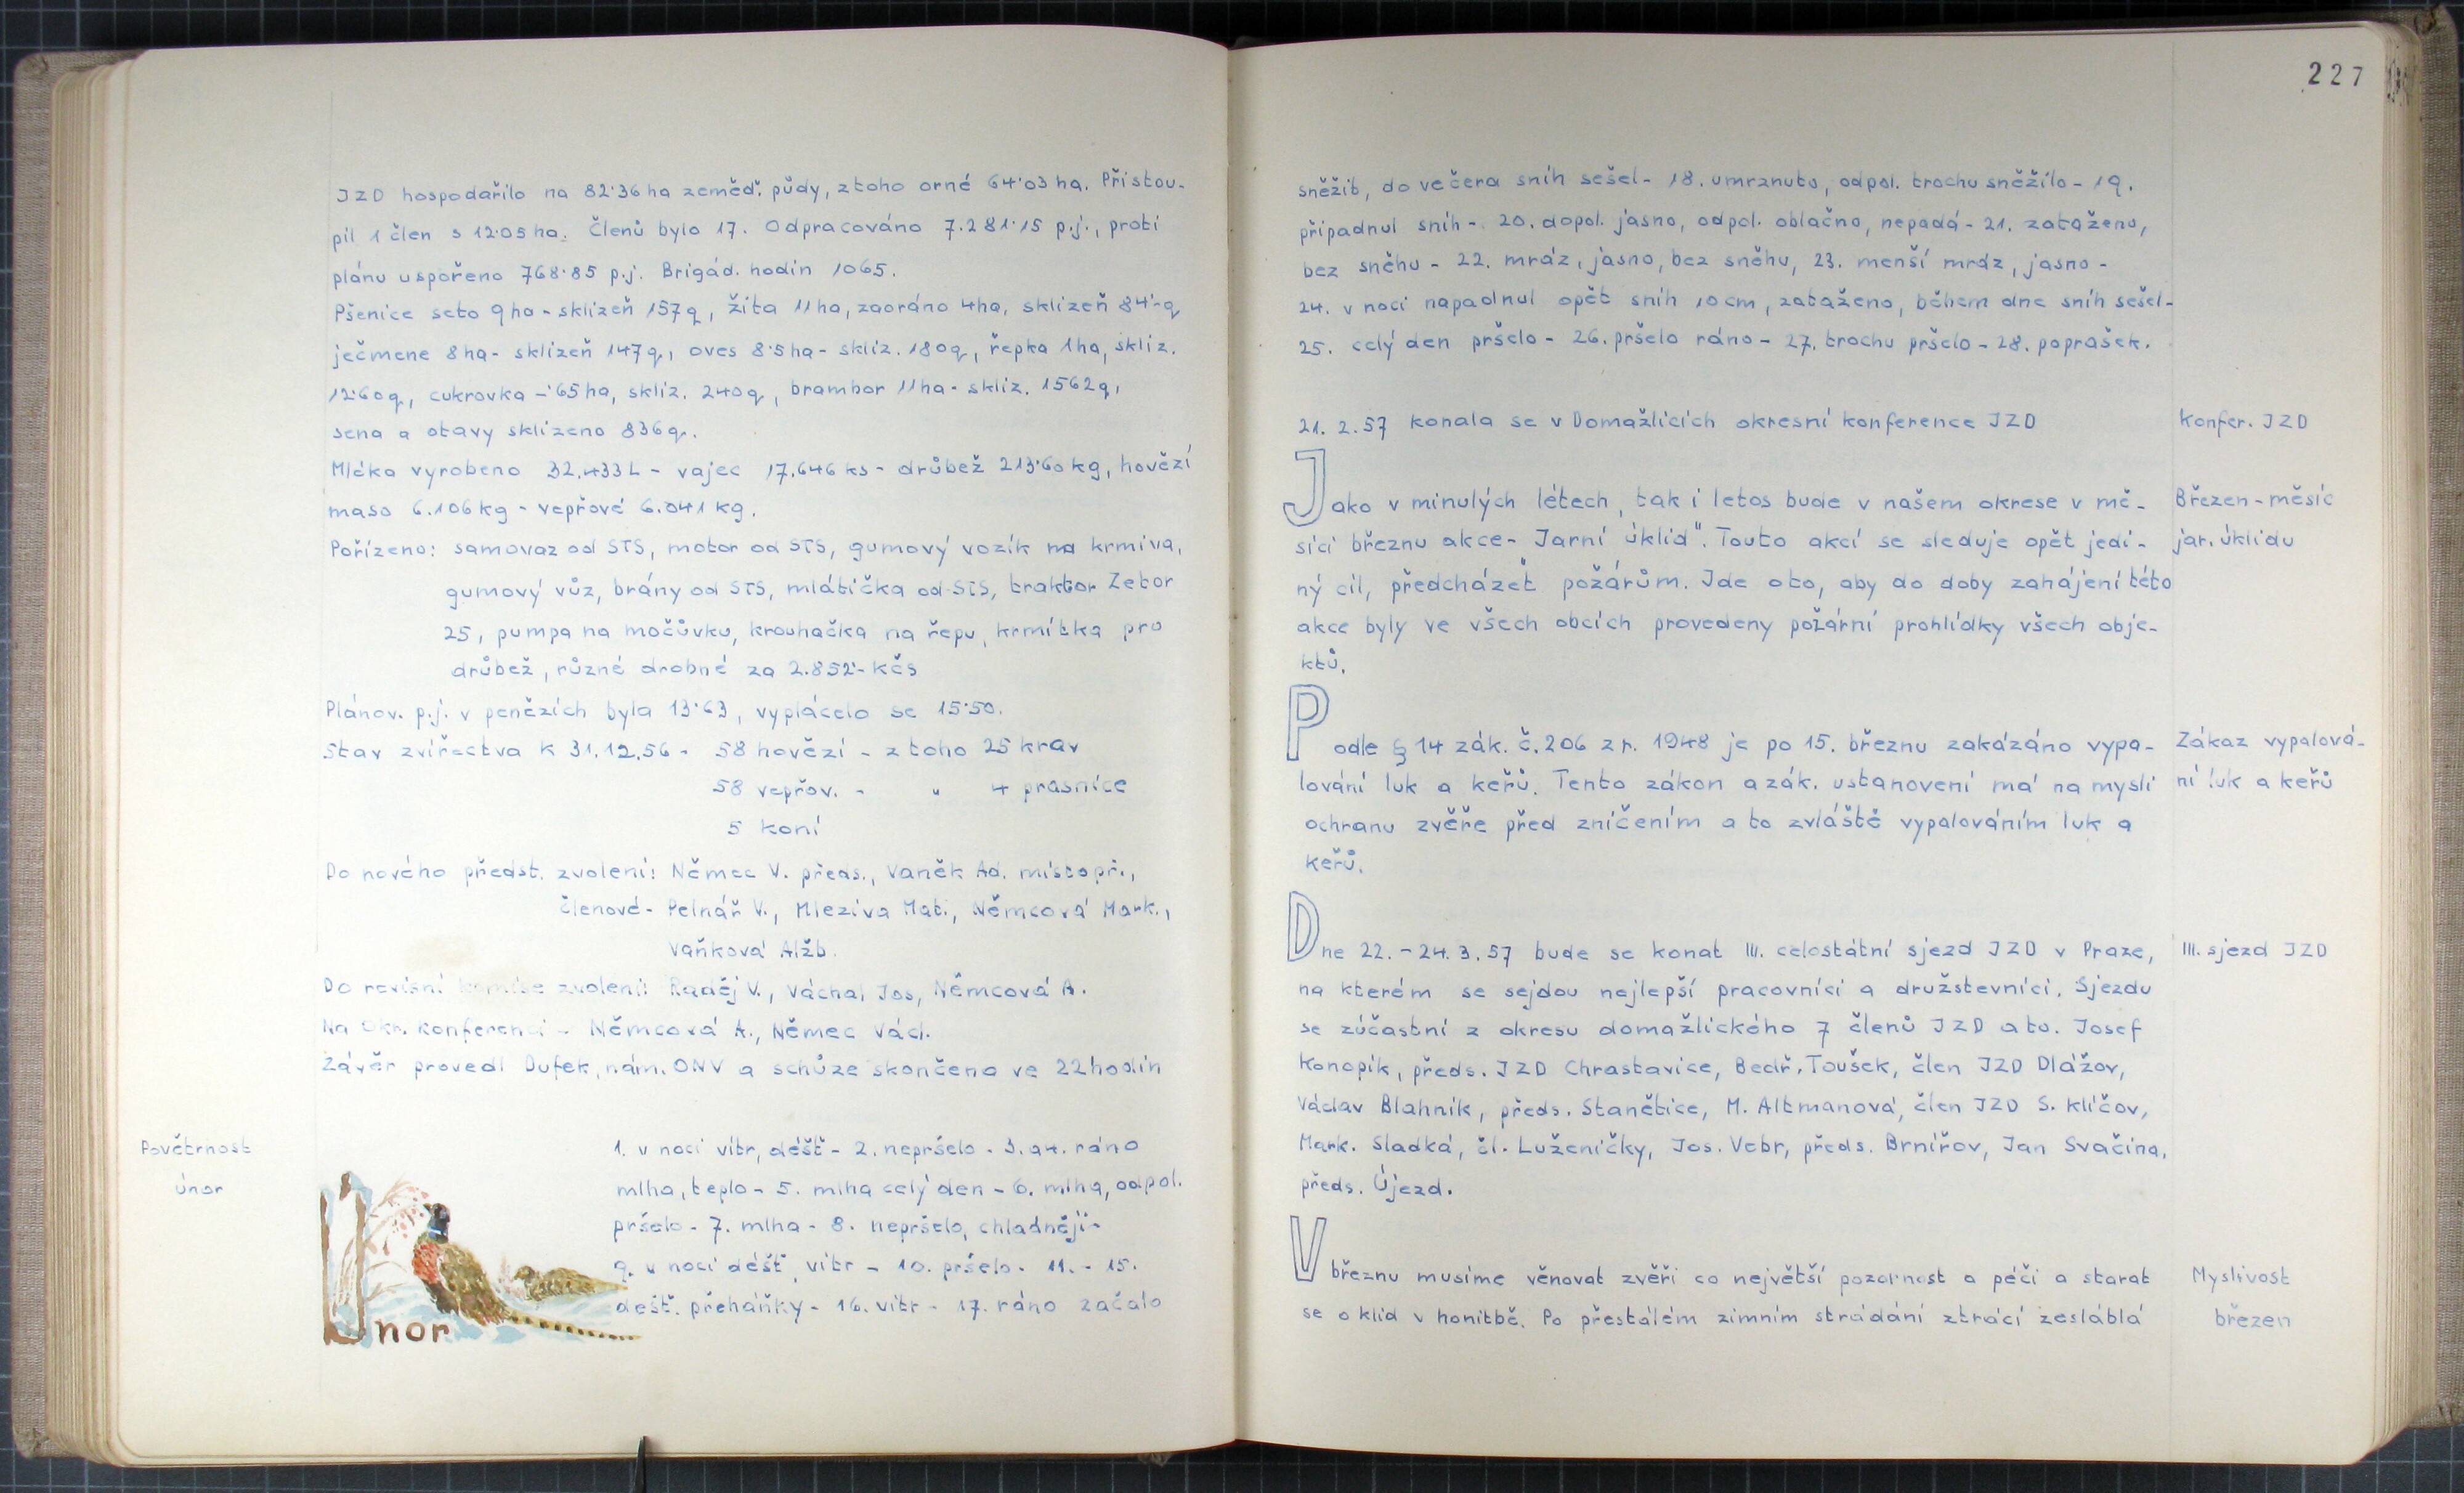 JZD hospodařilo na 82·36 ha zeměď. půdy, z toho orné 64·03 ha. Přistou-
pil 1 člen s 12·05 ha. Členů bylo 17. Odpracováno 7.281·15 p.j., proti
plánu uspořeno 768·85 p.j. Brigád. hodin 1065.
Pšenice seto 9 ha - sklizeň 157 q, žita 11 ha, zaoráno 4 ha, sklizeň 84·- q
ječmene 8 ha - sklizeň 147 q, oves 8·5 ha - skliz. 180 q, řepka 1 ha, skliz.
12·60 q, cukrovka -·65 ha, skliz. 240 q, brambor 11 ha - skliz. 1562 q,
sena a otavy sklizeno 836 q.
Mléka vyrobeno 32.433 L - vajec 17.646 ks - drůbež 213·60 kg, hovězí
maso 6.106 kg - vepřové 6.041 kg.
Pořízeno: samovaz od STS, motor od STS, gumový vozík na krmiva,
gumový vůz, brány od STS, mlátička od STS, traktor Zetor
25, pumpa na močůvku, krouhačka na řepu, krmítka pro
drůbež, různé drobné za 2.852·- kčs
Plánov. p.j. v penězích byla 13·63, vyplácelo se 15·50.
Stav zvířectva k 31.12.56 - 58 hovězí - z toho 25 krav
58 vepřov. - " 4 prasnice
5 koní
Do nového předst. zvoleni: Němec V. předs., Vaněk Ad. místopř.,
členové - Pelnář V., Mleziva Mat., Němcová Mark.,
Vaňková Alžb.
Do revisní komise zvoleni: Raděj V., Váchal Jos, Němcová A.
Na okr. konferenci - Němcová A., Němec Václ.
Závěr provedl Dufek, nám. ONV a schůze skončena ve 22 hodin
Povětrnost
únor
1. v noci vítr, déšť - 2. nepršelo - 3. a 4. ráno
mlha, teplo - 5. mlha celý den - 6. mlha, odpol.
pršelo - 7. mlha - 8. nepršelo, chladněji -
9. v noci déšť, vítr - 10. pršelo - 11. - 15.
dešť. přeháňky - 16. vítr - 17. ráno začalo
Únor
227
sněžit, do večera sníh sešel - 18. umrznuto, odpol. trochu sněžilo - 19.
připadnul sníh - 20. dopol. jasno, odpol. oblačno, nepadá - 21. zataženo,
bez sněhu - 22. mráz, jasno, bez sněhu, 23. menší mráz, jasno -
24. v noci napadnul opět sníh 10 cm, zataženo, během dne sníh sešel -
25. celý den pršelo - 26. pršelo ráno - 27. trochu pršelo - 28. poprašek.
21. 2. 57 konala se v Domažlicích okresní konference JZD
Konfer. JZD
Jako v minulých létech, tak i letos bude v našem okrese v mě-
síci březnu akce - „Jarní úklid". Touto akcí se sleduje opět jedi-
ný cíl, předcházet požárům. Jde o to, aby do doby zahájení této
akce byly ve všech obcích provedeny požární prohlídky všech obje-
ktů.
Březen - měsíc
jar. úklidu
Podle § 14 zák. č. 206 z r. 1948 je po 15. březnu zakázáno vypa-
lování luk a keřů. Tento zákon a zák. ustanovení má na mysli
ochranu zvěře před zničením a to zvláště vypalováním luk a
keřů.
Zákaz vypalová-
ní luk a keřů
Dne 22. - 24. 3. 57 bude se konat III. celostátní sjezd JZD v Praze,
na kterém se sejdou nejlepší pracovníci a družstevníci. Sjezdu
se zúčastní z okresu domažlického 7 členů JZD a to. Josef
Konopík, předs. JZD Chrastavice, Bedř. Toušek, člen JZD Dlážov,
Václav Blahník, předs. Stanětice, M. Altmanová, člen JZD S. Klíčov,
Mark. Sladká, čl. Luženičky, Jos. Vebr, předs. Brnířov, Jan Svačina,
předs. Újezd.
III. sjezd JZD
V březnu musíme věnovat zvěři co největší pozornost a péči a starat
se o klid v honitbě. Po přestálém zimním strádání ztrácí zesláblá
Myslivost
březen